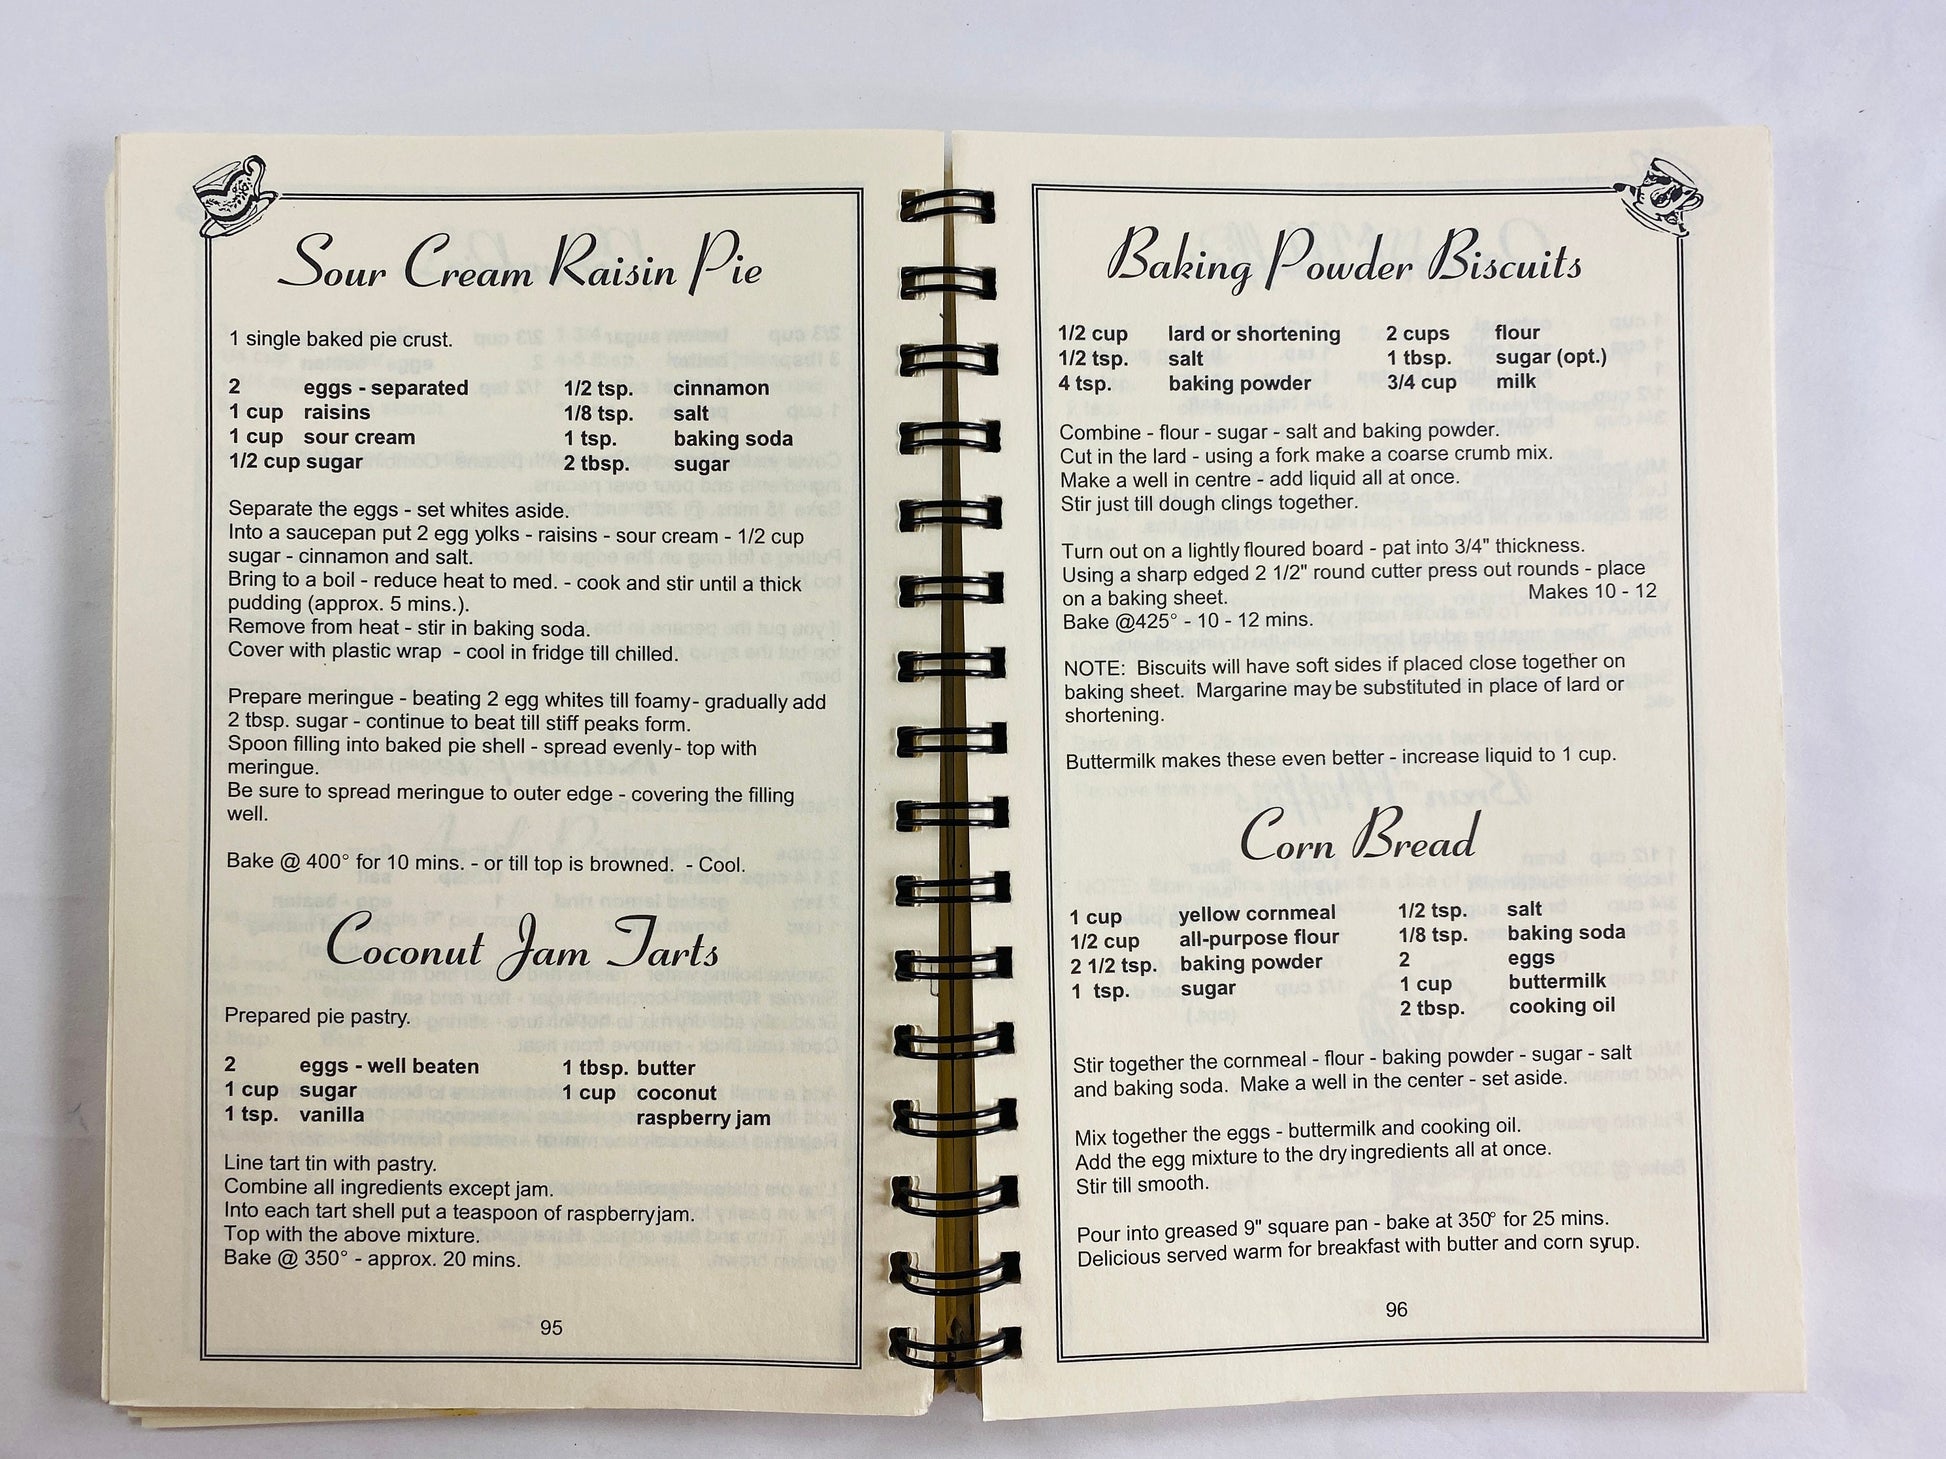 Sour Cream Raisin Pie
1 single baked pie crust.
2 eggs - separated 1/2 tsp. cinnamon
1 cup raisins 1/8 tsp. salt
1 cup sour cream 1 tsp. baking soda
1/2 cup sugar 2 tbsp. sugar
Separate the eggs - set whites aside.
Into a saucepan put 2 egg yolks - raisins - sour cream - 1/2 cup
sugar - cinnamon and salt.
Bring to a boil - reduce heat to med. - cook and stir until a thick
pudding (approx. 5 mins.).
Remove from heat - stir in baking soda.
Cover with plastic wrap - cool in fridge till chilled.
Prepare meringue - beating 2 egg whites till foamy - gradually add
2 tbsp. sugar - continue to beat till stiff peaks form.
Spoon filling into baked pie shell - spread evenly - top with
meringue.
Be sure to spread meringue to outer edge - covering the filling
well.
Bake @ 400° for 10 mins. - or till top is browned. - Cool.
Coconut Jam Tarts
Prepared pie pastry.
2 eggs - well beaten 1 tbsp. butter
1 cup sugar 1 cup coconut
1 tsp. vanilla raspberry jam
Line tart tin with pastry.
Combine all ingredients except jam.
Into each tart shell put a teaspoon of raspberry jam.
Top with the above mixture.
Bake @ 350° - approx. 20 mins.
95
Baking Powder Biscuits
1/2 cup lard or shortening 2 cups flour
1/2 tsp. salt 1 tbsp. sugar (opt.)
4 tsp. baking powder 3/4 cup milk
Combine - flour - sugar - salt and baking powder.
Cut in the lard - using a fork make a coarse crumb mix.
Make a well in centre - add liquid all at once.
Stir just till dough clings together.
Turn out on a lightly floured board - pat into 3/4" thickness.
Using a sharp edged 2 1/2" round cutter press out rounds - place
on a baking sheet. Makes 10 - 12
Bake @425° - 10 - 12 mins.
NOTE: Biscuits will have soft sides if placed close together on
baking sheet. Margarine may be substituted in place of lard or
shortening.
Buttermilk makes these even better - increase liquid to 1 cup.
Corn Bread
1 cup yellow cornmeal 1/2 tsp. salt
1/2 cup all-purpose flour 1/8 tsp. baking soda
2 1/2 tsp. baking powder 2 eggs
1 tsp. sugar 1 cup buttermilk
2 tbsp. cooking oil
Stir together the cornmeal - flour - baking powder - sugar - salt
and baking soda. Make a well in the center - set aside.
Mix together the eggs - buttermilk and cooking oil.
Add the egg mixture to the dry ingredients all at once.
Stir till smooth.
Pour into greased 9" square pan - bake at 350° for 25 mins.
Delicious served warm for breakfast with butter and corn syrup.
96